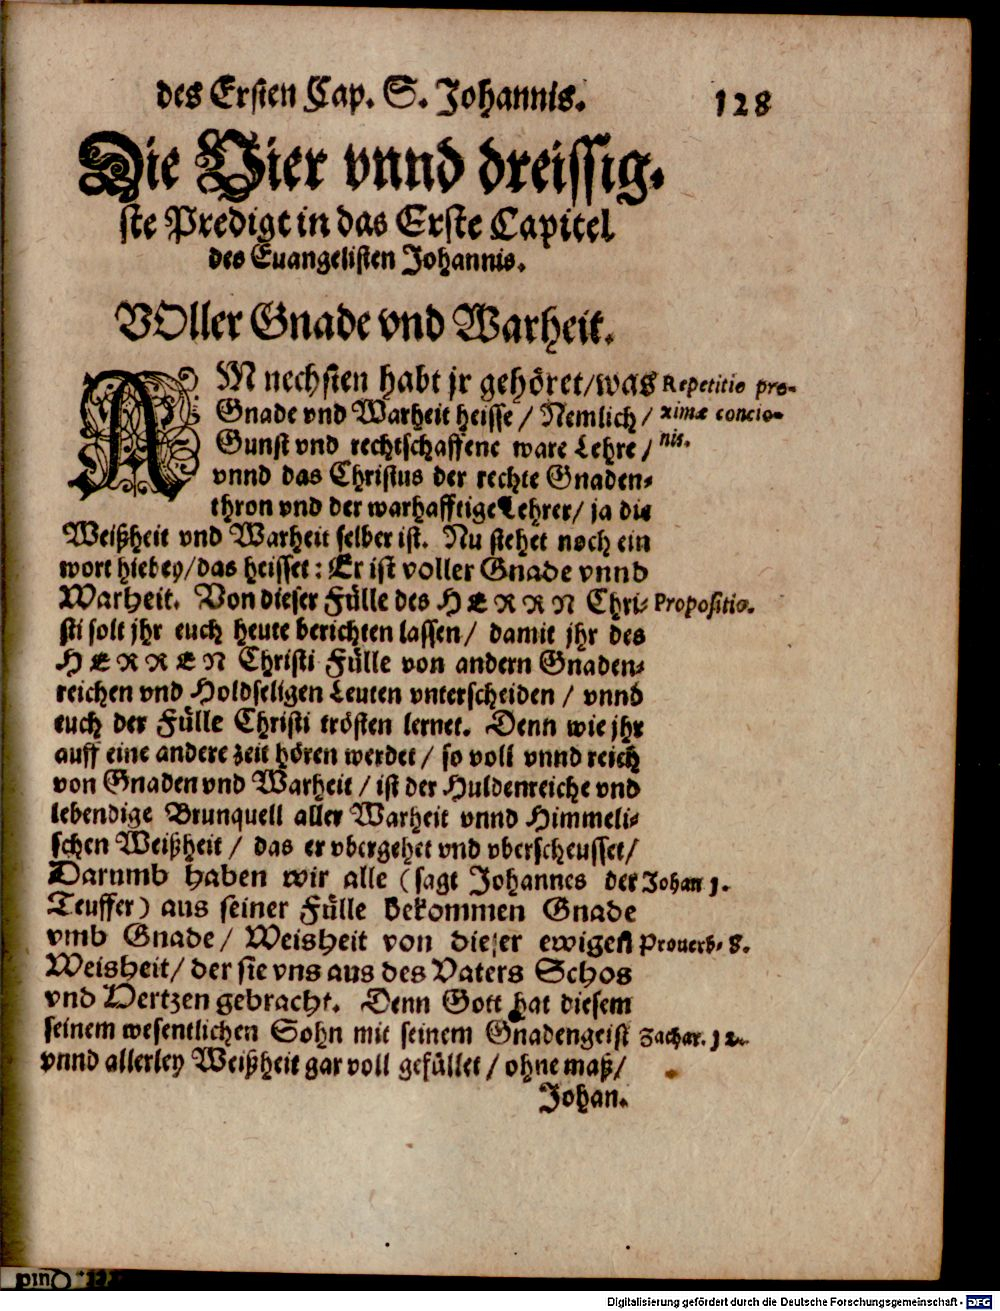 des Ersten Cap. S. Johannis. 128
Die Vier vnnd dreissig-
ste Predigt in das Erste Capitel
des Euangelisten Johannis.
VOller Gnade vnd Warheit.
AM nechsten habt jr gehöret/was
Gnade vnd Warheit heisse / Nemlich /
Gunst vnd rechtschaffene ware Lehre /
vnnd das Christus der rechte Gnaden-
thron vnd der warhafftige Lehrer/ ja die
Weißheit vnd Warheit selber ist. Nu stehet noch ein
wort hiebey/das heisset: Er ist voller Gnade vnnd
Warheit. Von dieser Fülle des HERRN Chri-
sti solt jhr euch heute berichten lassen/ damit jhr des
HERREN Christi Fülle von andern Gnaden-
reichen vnd Holdseligen Leuten vnterscheiden / vnnd
euch der Fülle Christi trösten lernet. Denn wie jhr
auff eine andere zeit hören werdet / so voll vnnd reich
von Gnaden vnd Warheit / ist der Huldenreiche vnd
lebendige Brunquell aller Warheit vnnd Himmeli-
schen Weißheit / das er vbergehet vnd vberscheusset/
Darumb haben wir alle (sagt Johannes der
Teuffer) aus seiner Fülle bekommen Gnade
vmb Gnade/ Weisheit von dieser ewigen
Weisheit/ der sie vns aus des Vaters Schos
vnd Hertzen gebracht. Denn Gott hat diesem
seinem wesentlichen Sohn mit seinem Gnadengeist
vnnd allerley Weißheit gar voll gefüllet / ohne maß/
Johan.
Repetitio pro-
ximæ concio-
nis.
Propositio.
Johan 1.
Prouerb. 8.
Zachar. 12.
Digitalisierung gefördert durch die Deutsche Forschungsgemeinschaft - DFG